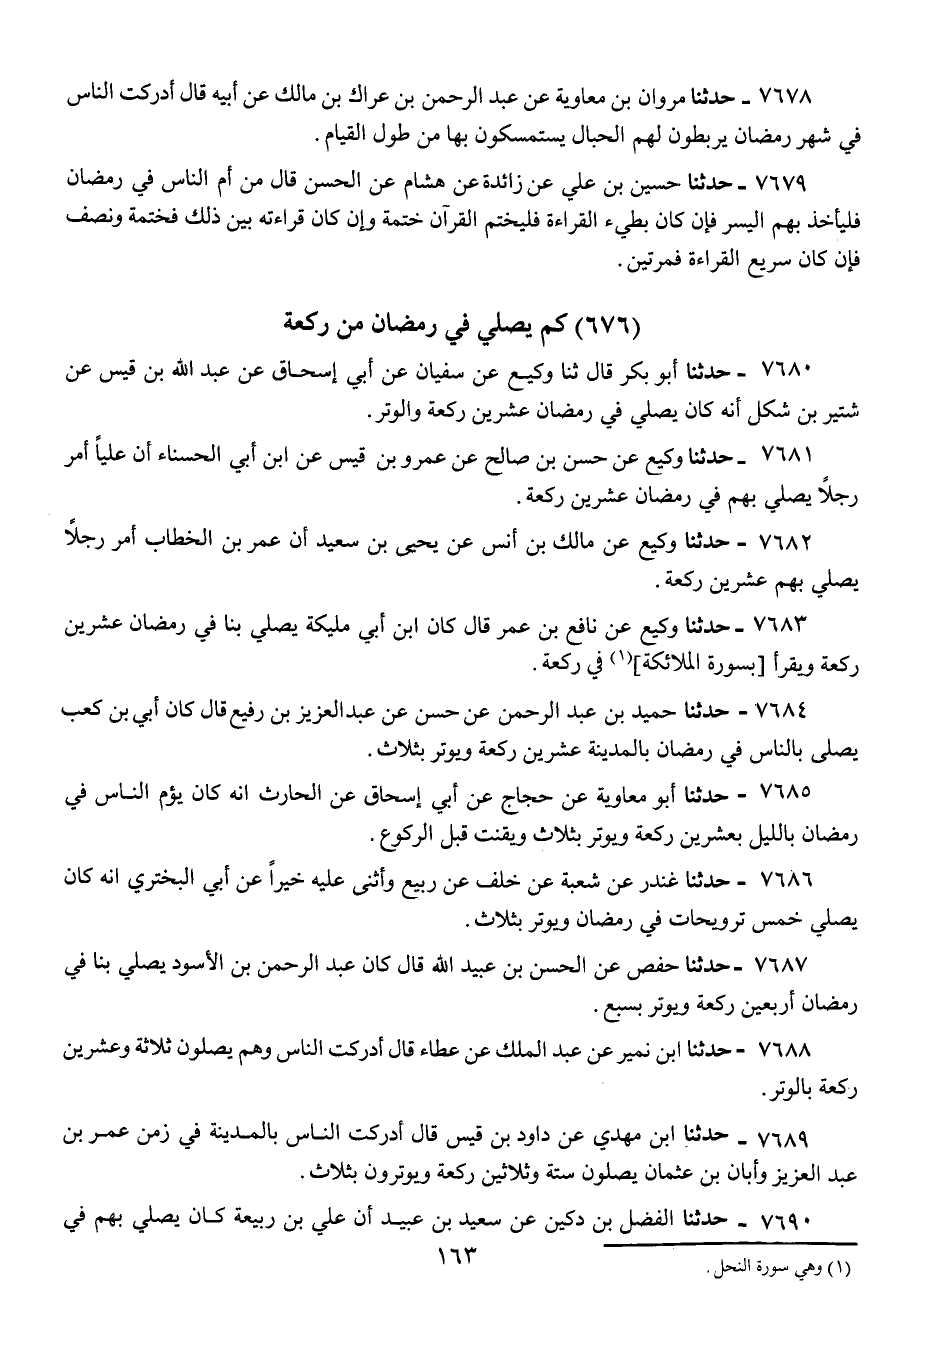 ٧٦٧٨ ـ حدثنا مروان بن معاوية عن عبد الرحمن بن عراك بن مالك عن أبيه قال أدركت الناس
في شهر رمضان يربطون لهم الحبال يستمسكون بها من طول القيام .
٧٦٧٩ ـ حدثنا حسين بن علي عن زائدة عن هشام عن الحسن قال من أم الناس في رمضان
فليأخذ بهم اليسر فإن كان بطيء القراءة فليختم القرآن ختمة وإن كان قراءته بين ذلك فختمة ونصف
فإن كان سريع القراءة فمرتين .
(٦٧٦) كم يصلي في رمضان من ركعة
٧٦٨٠ ـ حدثنا أبو بكر قال ثنا وكيـع عن سفيان عن أبي إسحـاق عن عبد الله بن قيس عن
شتير بن شكل أنه كان يصلي في رمضان عشرين ركعة والوتر .
٧٦٨١ ـ حدثنا وكيع عن حسن بن صالح عن عمرو بن قيس عن ابن أبي الحسناء أن علياً أمر
رجلاً يصلي بهم في رمضان عشرين ركعة .
٧٦٨٢ ـ حدثنا وكيع عن مالك بن أنس عن يحيى بن سعيد أن عمر بن الخطاب أمر رجلاً
يصلي بهم عشرين ركعة .
٧٦٨٣ ـ حدثنا وكيع عن نافع بن عمر قال كان ابن أبي مليكة يصلي بنا في رمضان عشرين
ركعة ويقرأ [بسورة الملائكة](١) في ركعة .
٧٦٨٤ ـ حدثنا حميد بن عبد الرحمن عن حسن عن عبد العزيز بن رفيع قال كان أبي بن كعب
يصلى بالناس في رمضان بالمدينة عشرين ركعة ويوتر بثلاث .
٧٦٨٥ ـ حدثنا أبو معاوية عن حجاج عن أبي إسحاق عن الحارث انه كان يؤم النـاس في
رمضان بالليل بعشرين ركعة ويوتر بثلاث ويقنت قبل الركوع .
٧٦٨٦ ـ حدثنا غندر عن شعبة عن خلف عن ربيع وأثنى عليه خيراً عن أبي البختري انه كان
يصلي خمس ترويحات في رمضان ويوتر بثلاث .
٧٦٨٧ ـ حدثنا حفص عن الحسن بن عبيد الله قال كان عبد الرحمن بن الأسود يصلي بنا في
رمضان أربعين ركعة ويوتر بسبع .
٧٦٨٨ ـ حدثنا ابن نمير عن عبد الملك عن عطاء قال أدركت الناس وهم يصلون ثلاثة وعشرين
ركعة بالوتر .
٧٦٨٩ ـ حدثنا ابن مهدي عن داود بن قيس قال أدركت النـاس بالمـدينة في زمن عمـر بن
عبد العزيز وأبان بن عثمان يصلون ستة وثلاثين ركعة ويوترون بثلاث .
٧٦٩٠ ـ حدثنا الفضل بن دكين عن سعيد بن عبيـد أن علي بن ربيعة كـان يصلي بهم في
(١) وهي سورة النحل .
١٦٣